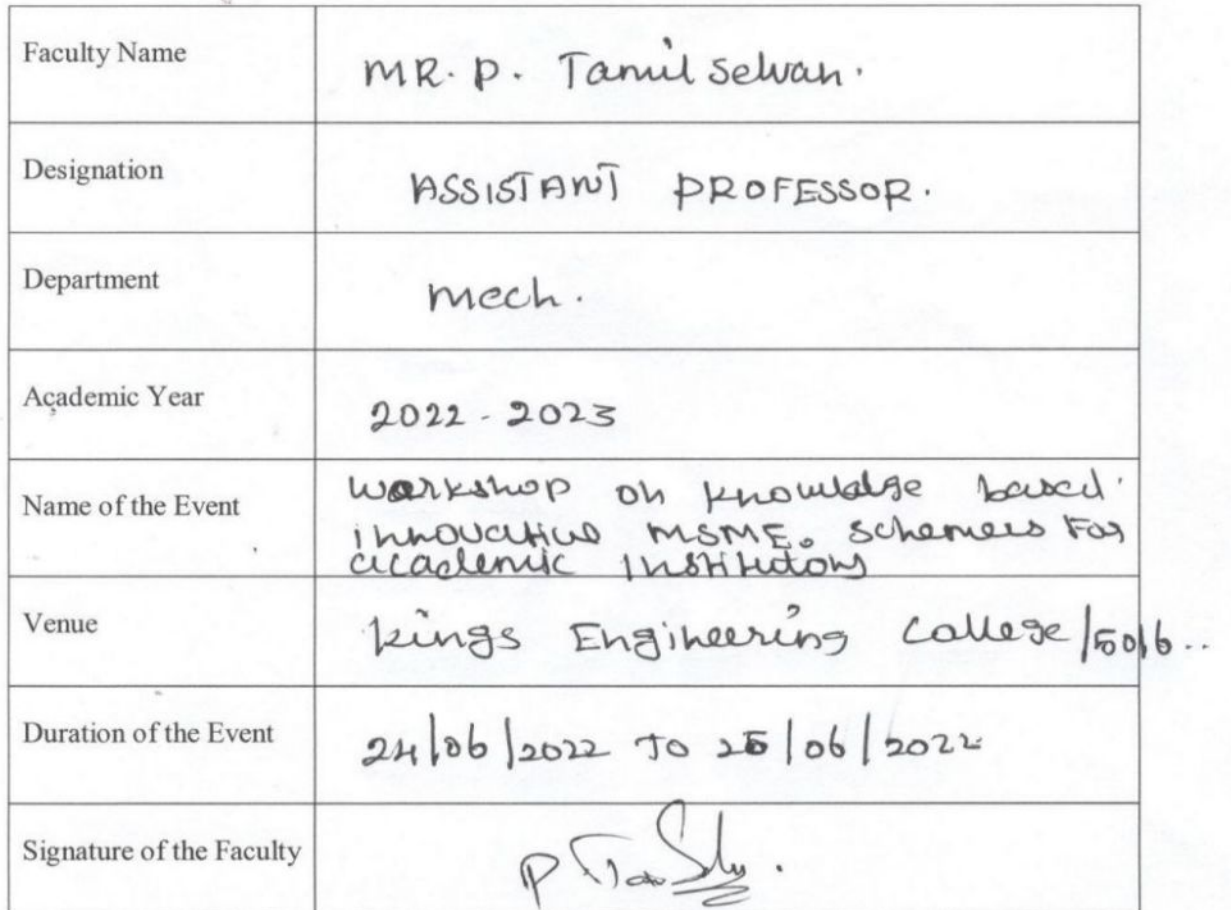 Faculty Name
MR. P. Tamil Selvan.
Designation
ASSISTANT PROFESSOR.
Department
Mech.
Academic Year
2022 - 2023
Name of the Event
Workshop on knowldge based
innovative MSME. Schemes For
academic Institutions
Venue
Kings Engineering College
Duration of the Event
24/06/2022 TO 25/06/2022
Signature of the Faculty